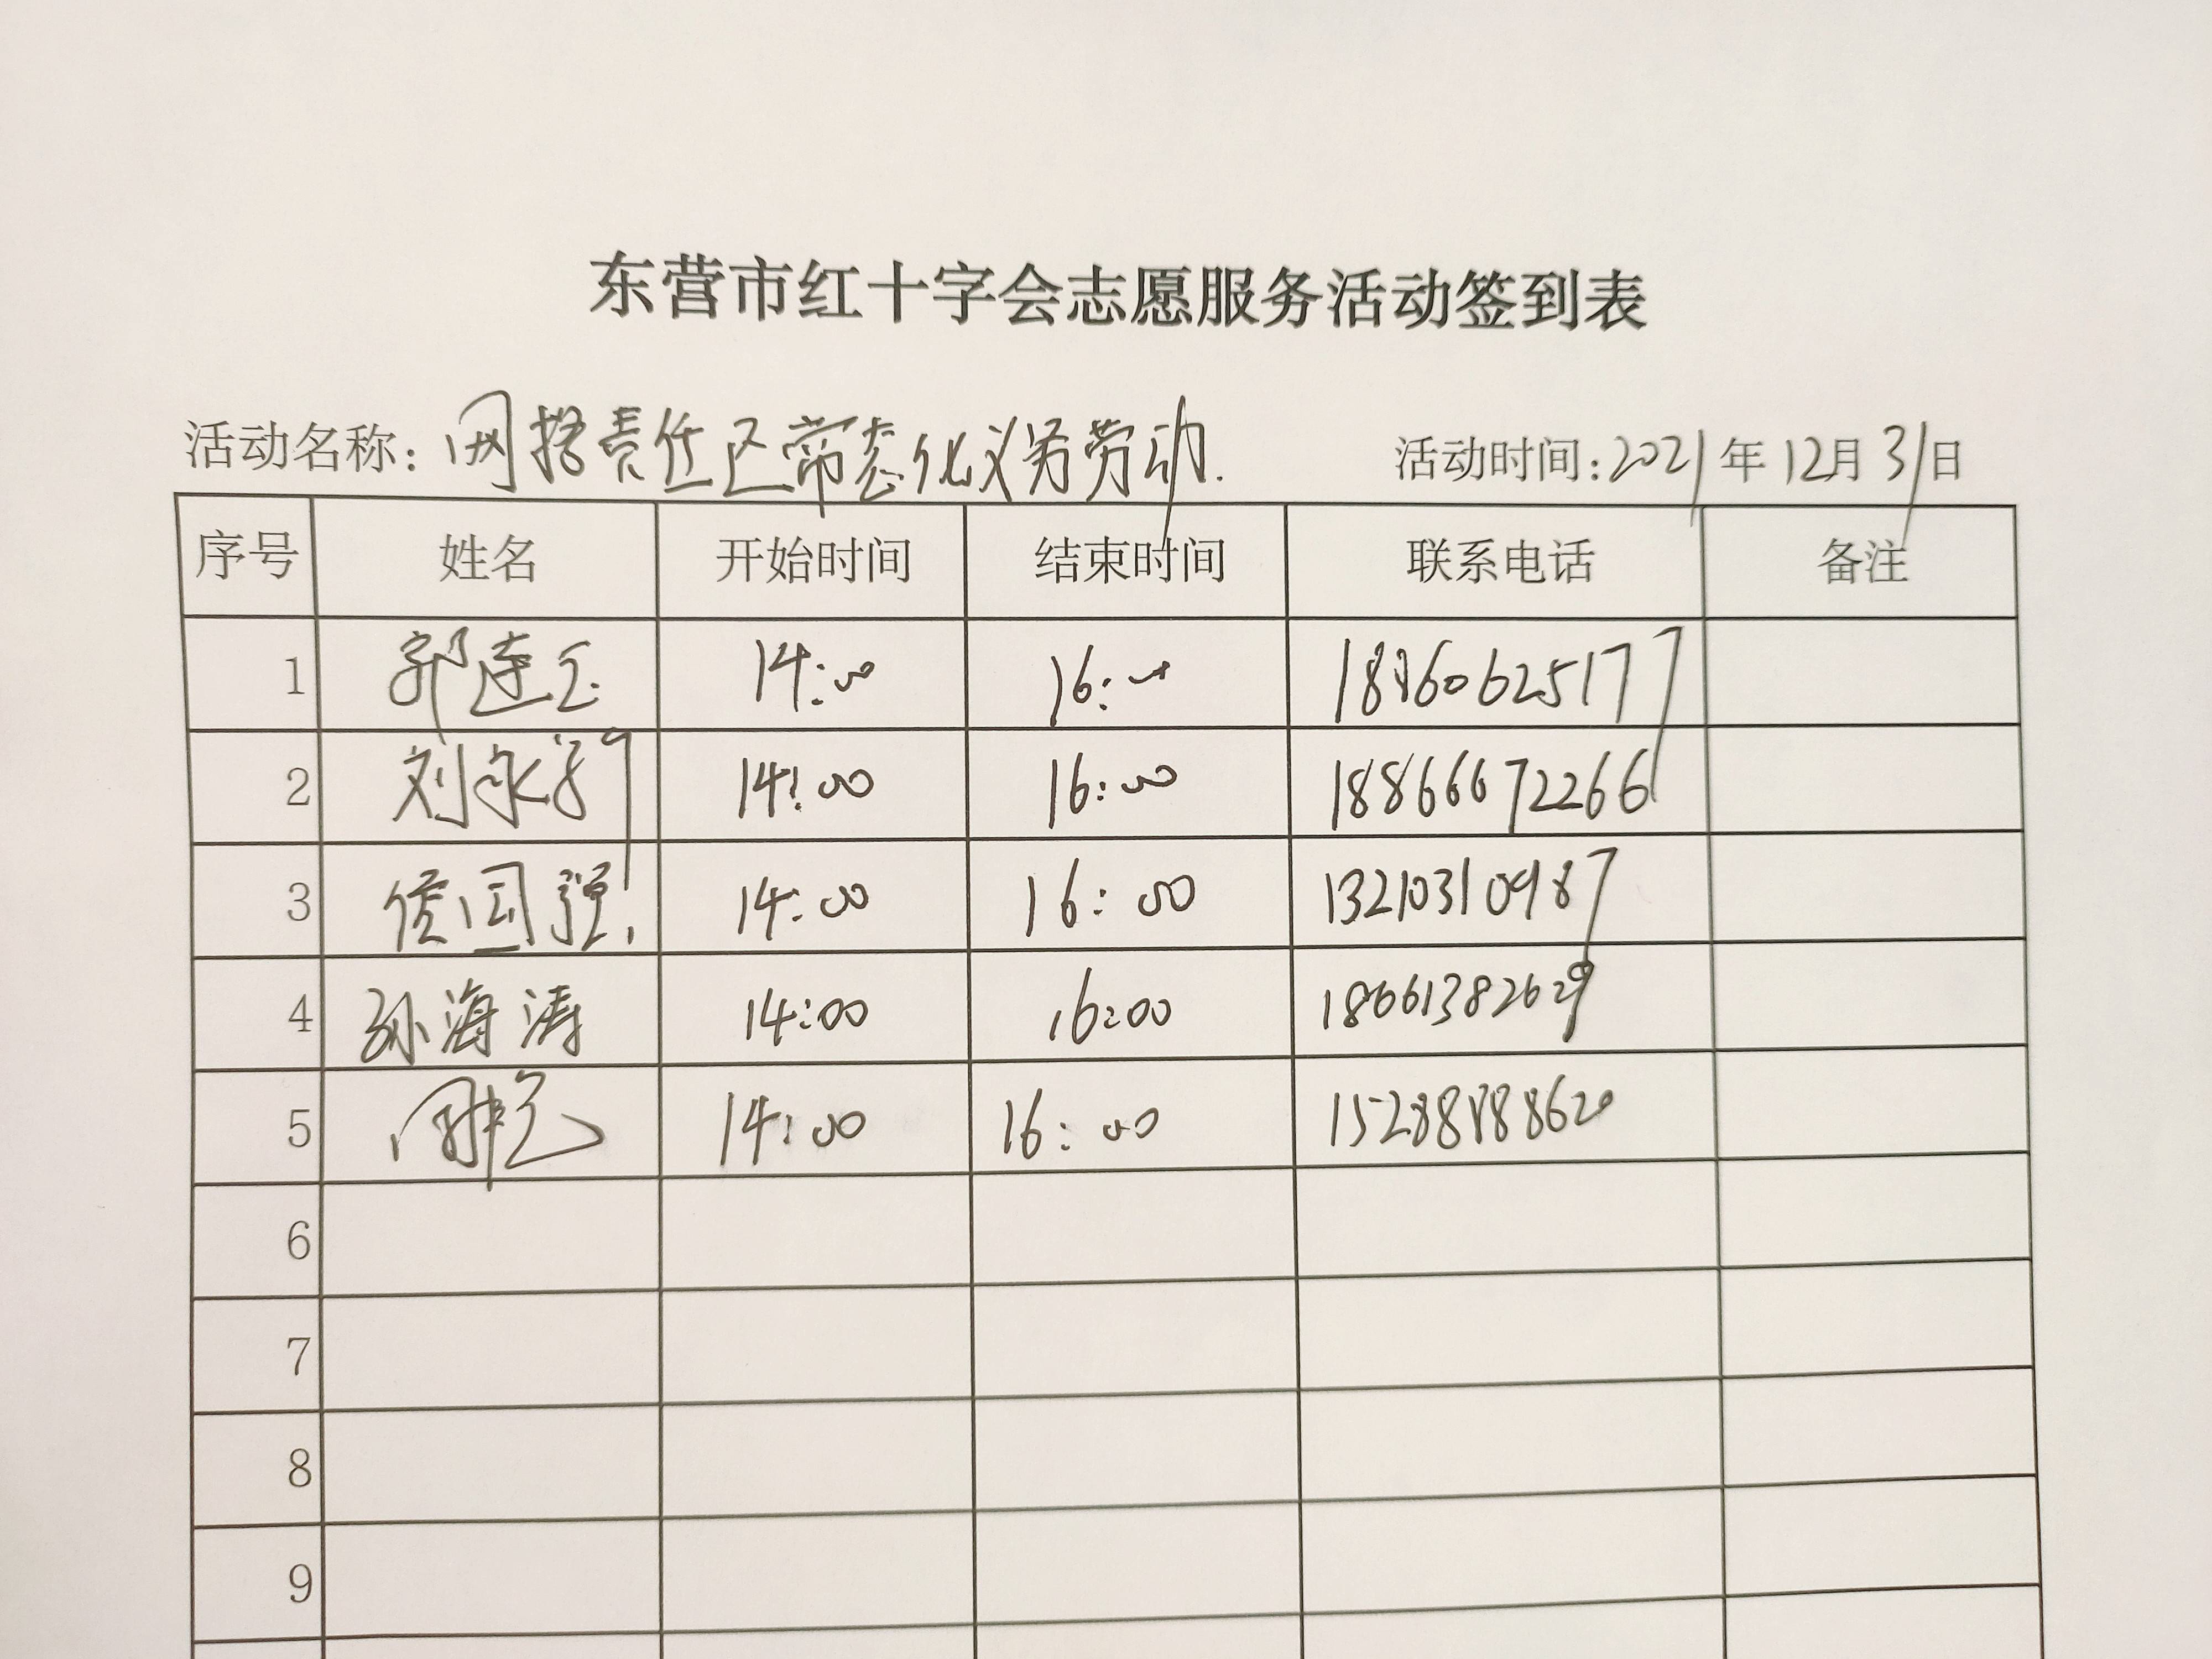 东营市红十字会志愿服务活动签到表
活动名称：网格责任区常态化义务劳动.
活动时间：2021年12月31日
序号 姓名 开始时间 结束时间 联系电话 备注
1 郭连玉 14:00 16:00
2 刘永 14:00 16:00 18866672266
3 侯国强 14:00 16:00 13210310987
4 孙海涛 14:00 16:00 18661382629
5 14:00 16:00 15288888620
6
7
8
9